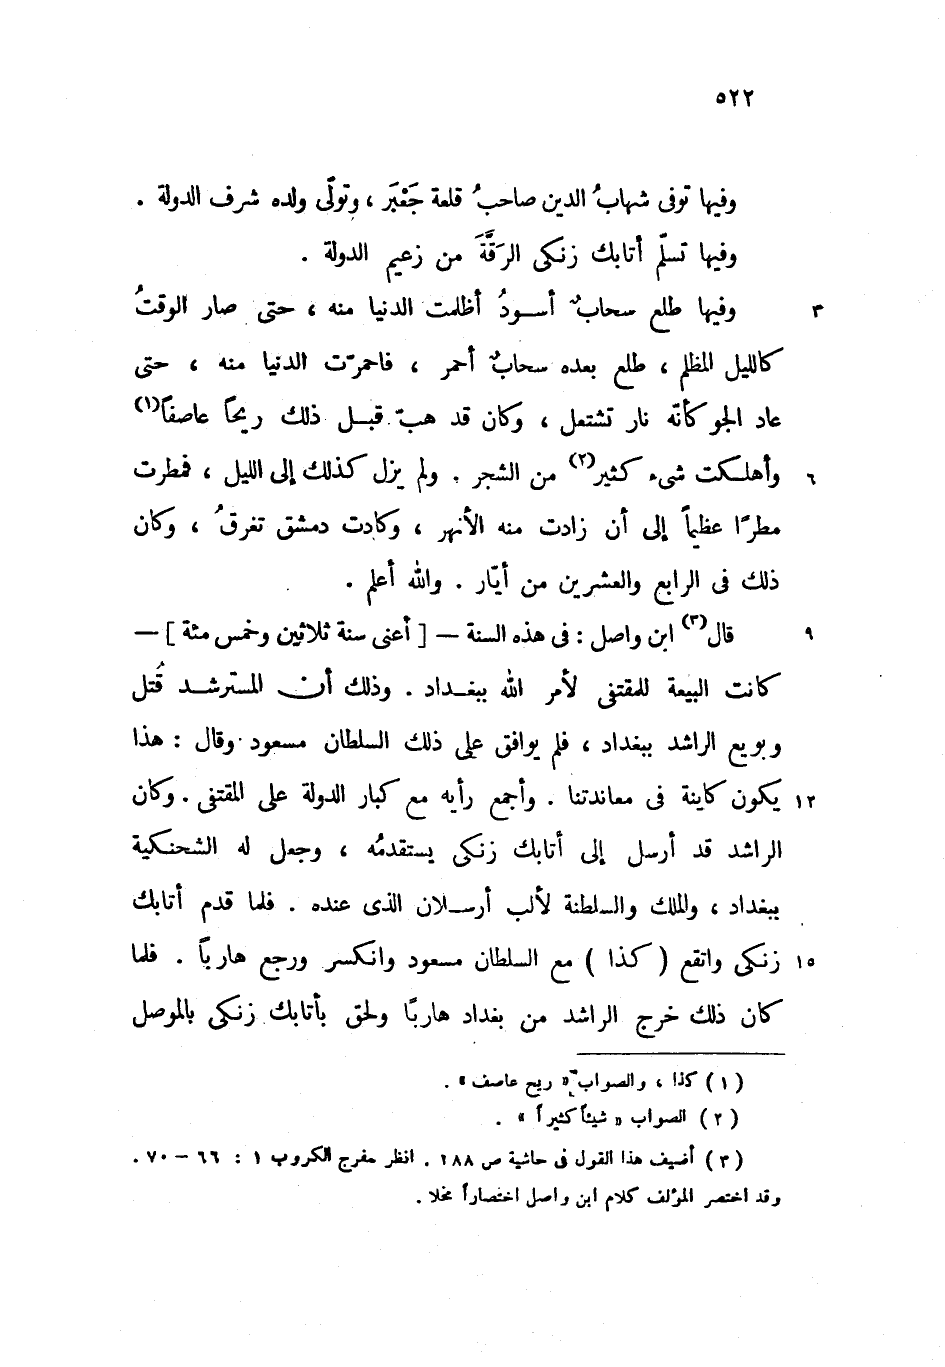 ٥٢٢
وفيها توفى شهابُ الدين صاحبُ قلعة جَعْبَر ، وتولّى ولده شرف الدولة .
وفيها تسلّم أتابك زنكى الرَقَّةَ من زعيم الدولة .
٣ وفيها طلع سحابٌ أسودُ أظلمت الدنيا منه ، حتى صار الوقتُ
كالليل المظلم ، طلع بعده سحابٌ أحمر ، فاحمرّت الدنيا منه ، حتى
عاد الجو كأنّه نار تشتعل ، وكان قد هبّ قبل ذلك ريحًا عاصفًا(١)
٦ وأهلكت شىء كثير(٢) من الشجر . ولم يزل كذلك إلى الليل ، فمطرت
مطرًا عظيمًا إلى أن زادت منه الأنهر ، وكادت دمشق تغرقُ ، وكان
ذلك فى الرابع والعشرين من أيّار . والله أعلم .
٩ قال(٣) ابن واصل : فى هذه السنة — [ أعنى سنة ثلاثين وخمس مئة ] —
كانت البيعة للمقتفى لأمر الله ببغداد . وذلك أن المسترشد قُتل
وبويع الراشد ببغداد ، فلم يوافق على ذلك السلطان مسعود وقال : هذا
١٢ يكون كاينة فى معاندتنا . وأجمع رأيه مع كبار الدولة على المقتفى . وكان
الراشد قد أرسل إلى أتابك زنكى يستقدمُه ، وجعل له الشحنكية
ببغداد ، والملك والسلطنة لألب أرسلان الذى عنده . فلما قدم أتابك
١٥ زنكى واتقع ( كذا ) مع السلطان مسعود وانكسر ورجع هاربًا . فلما
كان ذلك خرج الراشد من بغداد هاربًا ولحق بأتابك زنكى بالموصل
( ١ ) كذا ، والصواب « ريح عاصف » .
( ٢ ) الصواب « شيئًا كثيرًا » .
( ٣ ) أضيف هذا القول فى حاشية ص ١٨٨ . انظر مفرج الكروب ١ : ٦٦ — ٧٠ .
وقد اختصر المؤلف كلام ابن واصل اختصارًا مخلا .